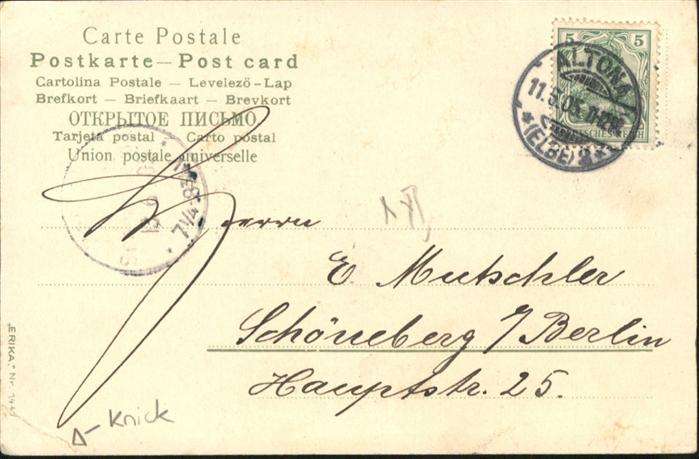 Carte Postale
Postkarte — Post card
Cartolina Postale — Levelező-Lap
Brefkort — Briefkaart — Brevkort
ОТКРЫТОЕ ПИСЬМО
Tarjeta postal — Carto postal
Union postale universelle
5 5
ALTONA
11.5.05.
*(ELBE)
DEUTSCHES REICH
7¼-8½
Herrn
E. Mutschler
Schöneberg b/Berlin
Hauptstr. 25.
Knick
"ERIKA" Nr.